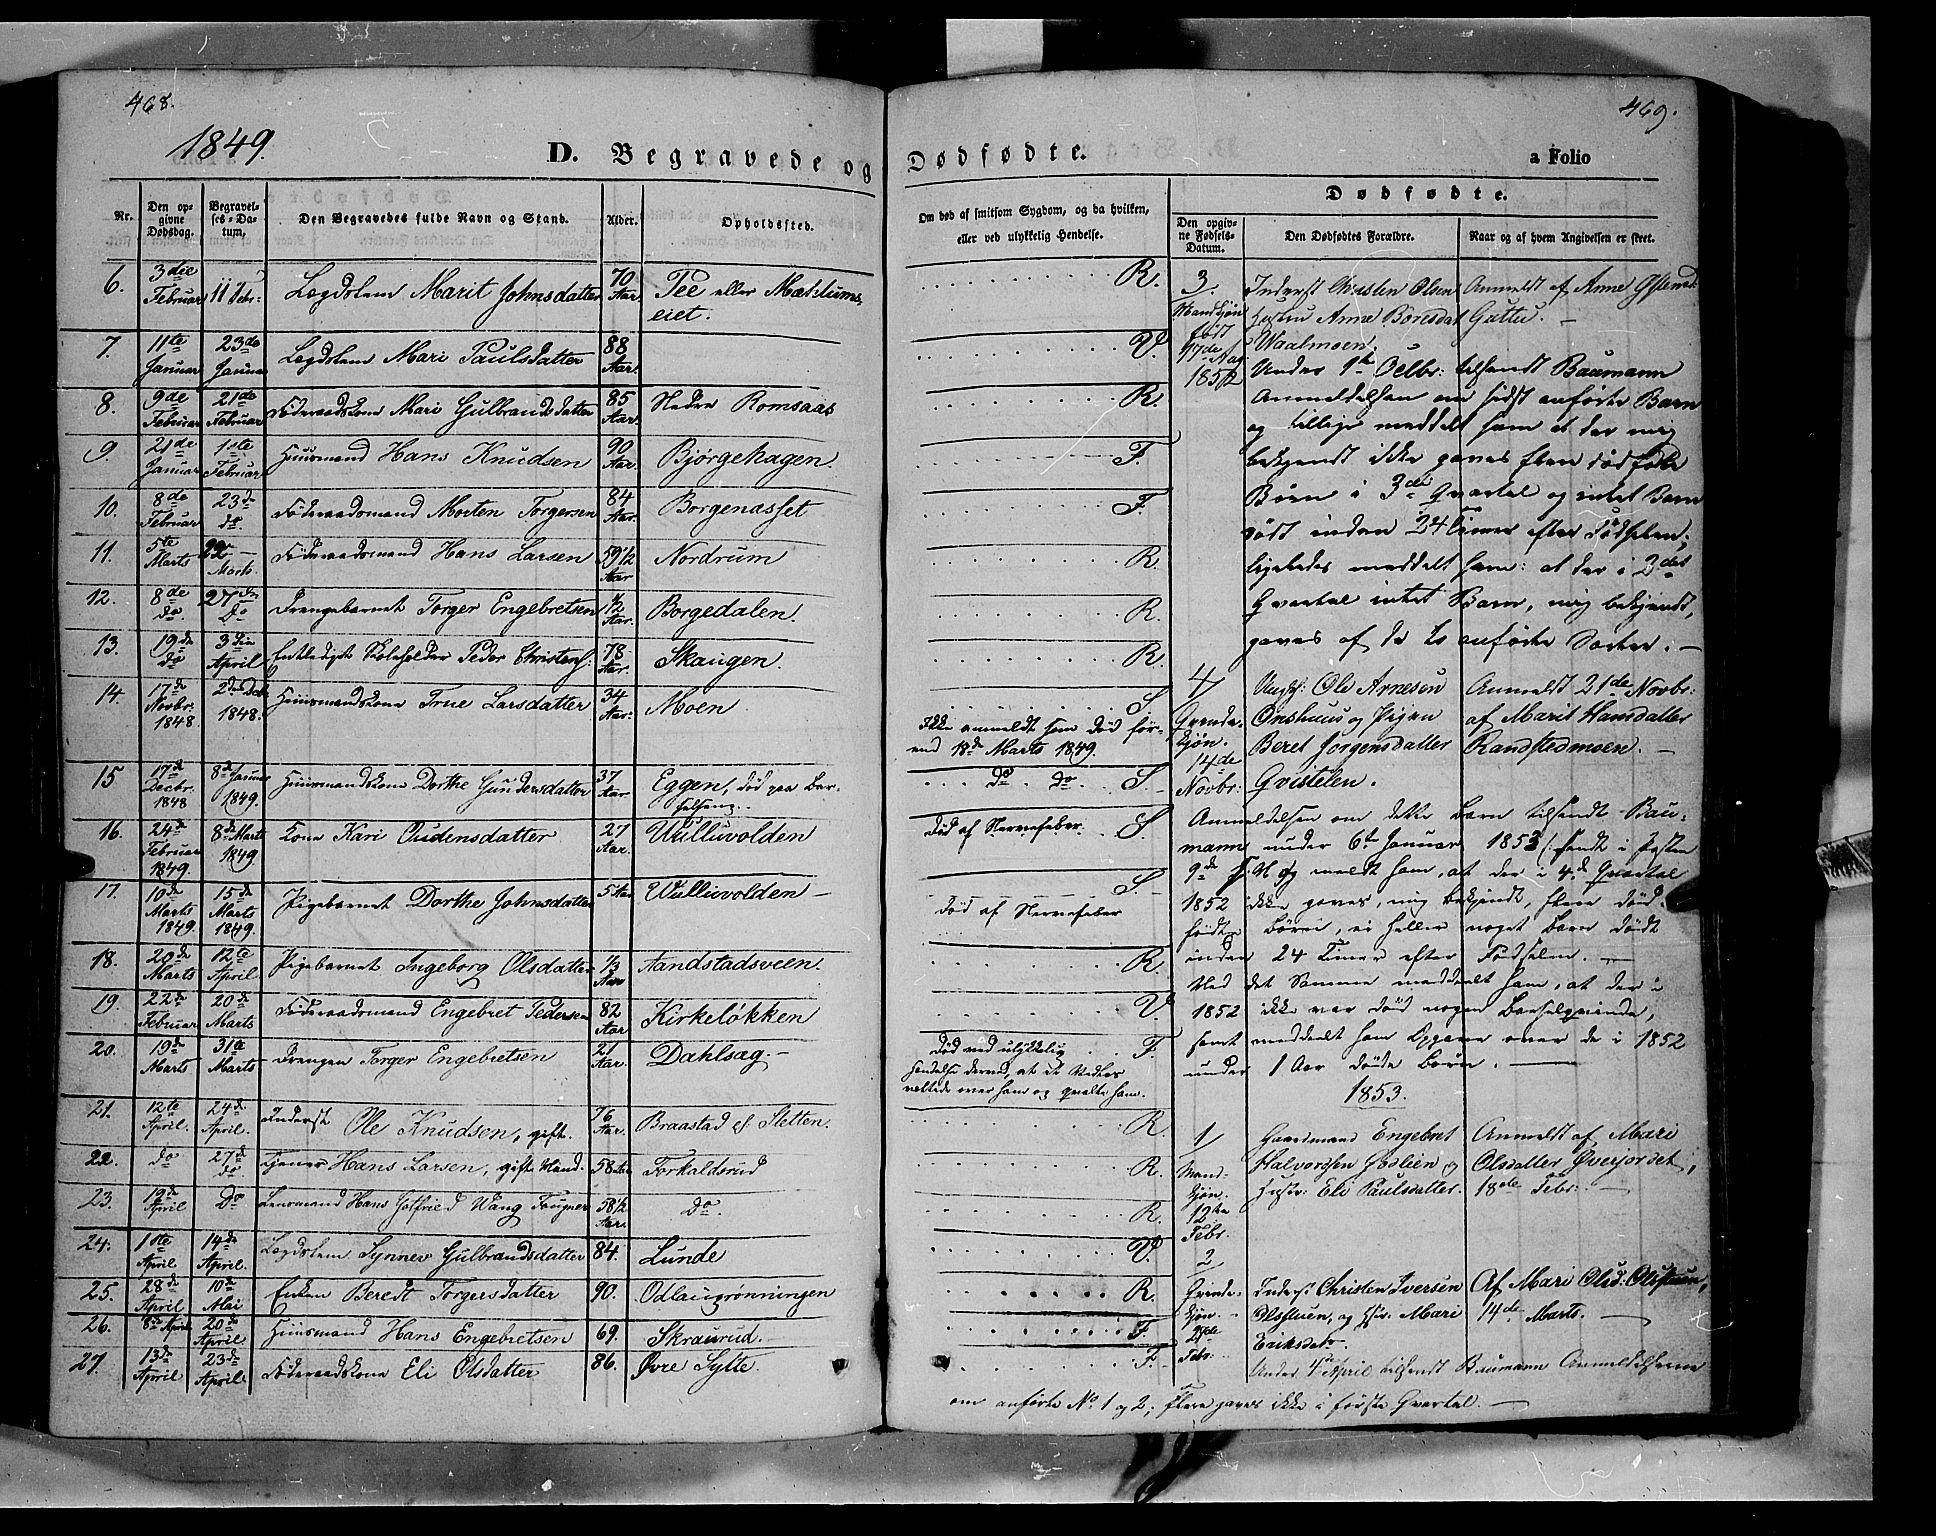 468.
1849.
D. Begravede og
Nr.
Den opgivne Dødsdag.
Begravelses-Datum,
Den Begravedes fulde Navn og Stand.
Alder.
Opholdssted.
6. 3die Februar 11 Febr: Lægdslem Marit Johnsdatter 70 Aar. Tee eller Mæhlumseiet.
7. 11te Januar 23de Januar Lægdslem Mari Paulsdatter 88 Aar.
8. 9de Februar 21de Februar Føderaadskone Mari Gulbrandsdatter 85 Aar. Nedre Romsaas
9. 21de Januar 1ste Februar Huusmand Hans Knudsen 90 Aar. Bjørgehagen.
10. 8de Februar 23de do Føderaadsmand Morten Torgersen 84 Aar. Borgenasset
11. 5te Marts 22 Marts. Føderaadsmand Hans Larsen 59 1/2 Aar Nordrum
12. 8de do. 27de do Drengebarnet Torger Engebretsen 1/2 Aar. Borgedalen.
13. 19de do 3die April Entlediget Skoleholder Peder Christens: 78 Aar. Skaugen.
14. 17de Novbr. 1848 2den Decbr 1848. Huusmandskone True Larsdatter 34 Aar. Moen
15 17de Decbr. 1848 8de Januar 1849. Huusmandskone Dorthe Gundersdatter 37 Aar Eggen, død paa Barselseng.
16. 24de Februar 1849. 8de Marts 1849. Kone Kari Oudensdatter 27 Aar. Wulluvolden
17. 10de Marts 1849. 15de Marts 1849. Pigebarnet Dorthe Johnsdatter 5 Aar Wulluvolden
18. 20de Marts 12te April Pigebarnet Ingeborg Olsdatter 1/3 Aar Aandstadsveen.
19. 22de Februar 20de Marts Føderaadsmand Engebret Pedersen 82 Aar Kirkeløkken
20. 19de Marts 31te Marts Drengen Torger Engebretsen 21 Aar. Dahlsag.
21. 12te April. 24de April. Inderst Ole Knudsen, gift. 76 Aar. Braastad ef Sletten.
22. do 27de do Tjener Hans Larsen, gift Mand. 58 Aar Forkalderud
23. 19de April Do Lensmand Hans Gotfried Wang Fougner 58 1/2 Aar. Do.
24. 1ste April 14de April. Lægdslem Synnev Gulbrandsdatter 84. Lunde
25. 28de April 10de Mai Enken Beredt Torgersdatter 90. Odlaugrønningen
26. 8de April 20de April Huusmand Hans Engebretsen 69. Skraurud.
27. 13de April 23de April. Føderaadskone Eli Olsdatter 86. Øvre Sylte.
469.
Dødfødte.
a Folio
Om død af smitsom Sygdom, og da hvilken,
eller ved ulykkelig Hendelse.
Dødfødte.
Den opgivne Fødsels-Datum.
Den Dødfødtes Forældre.
Naar og af hvem Angivelsen er skeet.
R.
V.
R.
F.
F.
R.
R.
R.
S.
Ikke anmeldt som død førend 18de Marts 1849.
do do S.
Død af Nervefeber S.
S.
Død af Nervefeber
R.
V.
Død ved ulykkelig F.
Hendelse derved, at et Vedlæs
væltede over ham og qvalte ham.
R.
R.
R.
V.
R.
F.
F.
3. Inderst Christen Olsen Anmeldt af Anne
Mandkjøn Hustru Anne Børesdat Guttu.
født Waalmoen.
17de Aug 1852
Under 1te Octbr: tilsendt Baumann
Anmeldelsen om sidst anførte Barn
og tillige meddelt ham at der mig
bekjendt ikke gaves flere dødfødte
Børn i 3die Qvartal og intet Barn
dødt inden 24 Timer efter Fødselen;
ligeledes meddelt ham: at der i 2det
Qvartal intet Barn, mig bekjendt,
gaves af de to anførte Sorter.
4 Ungk: Ole Arnesen Anmeldt 21de Novbr:
Qvindekjøn. Onshuus og Pigen af Marit Hansdatter
Beret Jørgensdatter Randstedmoen.
14de Novbr: Gvistelen.
Anmeldelsen om dette Barn tilsendt Baumann
under 6te Januar 1853 (: sendt i Posten
9de s. M og meldt ham, at der i 4de Qvartal
1852 ikke gaves, mig bekjendt, flere dødfødte
Børn, ei heller noget Barn dødt
inden 24 Timer efter Fødselen.
Ved det Samme meddeelt ham, at der i
1852 ikke var død nogen Barselqvinde,
samt meddeelt ham Opgave over de i 1852
under 1 Aar døde Børn.
1853.
1 Gaardmand Engebret Anmeldt af Mari
Mandkjøn. Halvorsen Fodlien og Olsdatter Øverjordet,
12te Febr. Hustr: Eli Paulsdatter. 18de Febr:
2 Qvindekjøn. Inderst Christen Iversen Af Mari Olsd: Olstuen,
Olsstuen, og Hst. Mari 14de Marts.
Febr: Eriksdatr.
Under 4de April tilsendt Baumann Anmeldelserne
om anførte No. 1 og 2; Flere gaves ikke i første Qvartal.